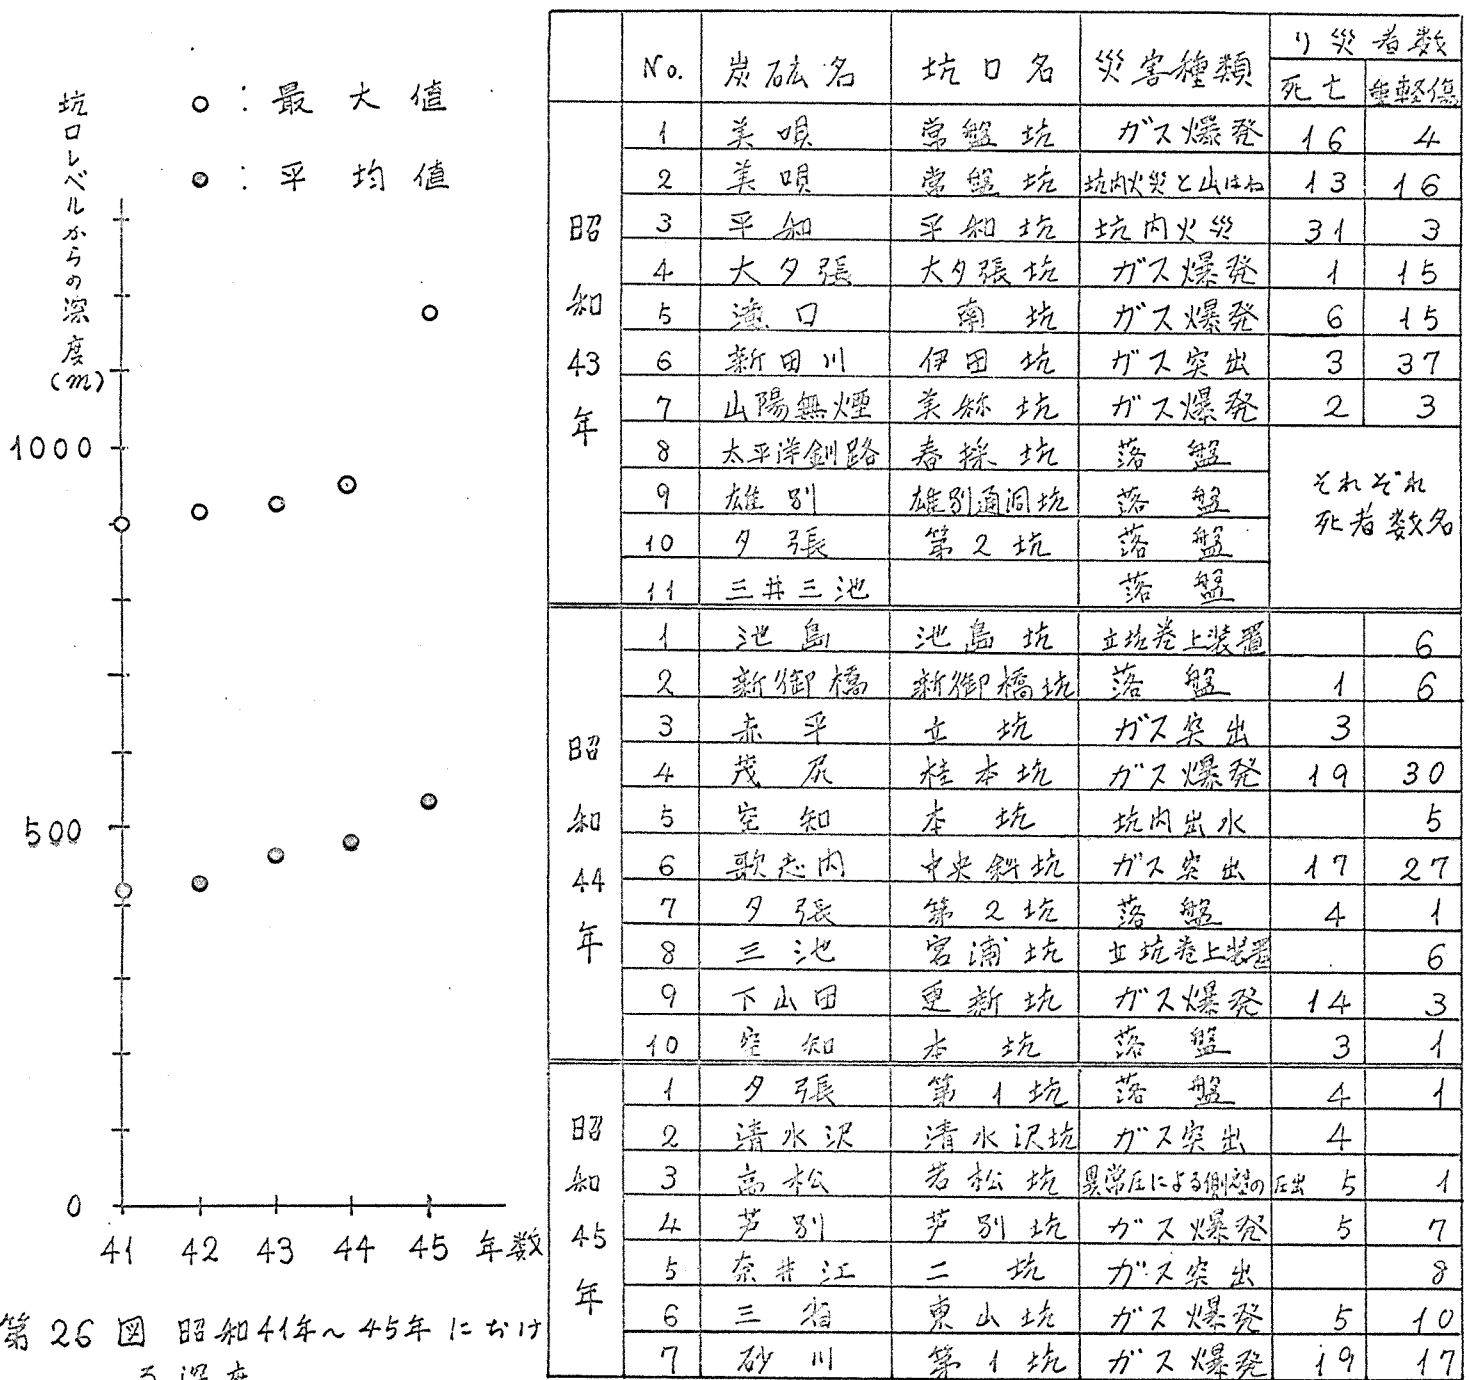 坑口レベルからの深度(m)
○:最大値
●:平均値
1000
500
0
41 42 43 44 45 年数
第26図 昭和41年~45年におけ
る深度
No. 炭砿名 坑口名 災害種類 り災者数
死亡 重軽傷
昭和43年
1 美唄 常盤坑 ガス爆発 16 4
2 美唄 常盤坑 坑内火災と山はね 13 16
3 平和 平和坑 坑内火災 31 3
4 大夕張 大夕張坑 ガス爆発 1 15
5 滝口 南坑 ガス爆発 6 15
6 新田川 伊田坑 ガス突出 3 37
7 山陽無煙 美祢坑 ガス爆発 2 3
8 太平洋釧路 春採坑 落盤
9 雄別 雄別通洞坑 落盤
10 夕張 第2坑 落盤
11 三井三池 落盤
それぞれ
死者数名
昭和44年
1 池島 池島坑 立坑巻上装置 6
2 新御橋 新御橋坑 落盤 1 6
3 赤平 立坑 ガス突出 3
4 茂尻 桂本坑 ガス爆発 19 30
5 空知 本坑 坑内出水 5
6 歌志内 中央斜坑 ガス突出 17 27
7 夕張 第2坑 落盤 4 1
8 三池 宮浦坑 立坑巻上装置 6
9 下山田 更新坑 ガス爆発 14 3
10 空知 本坑 落盤 3 1
昭和45年
1 夕張 第1坑 落盤 4 1
2 清水沢 清水沢坑 ガス突出 4
3 高松 若松坑 異常圧による側壁の圧出 5 1
4 芦別 芦別坑 ガス爆発 5 7
5 奈井江 二坑 ガス突出 8
6 三省 東山坑 ガス爆発 5 10
7 砂川 第1坑 ガス爆発 19 17